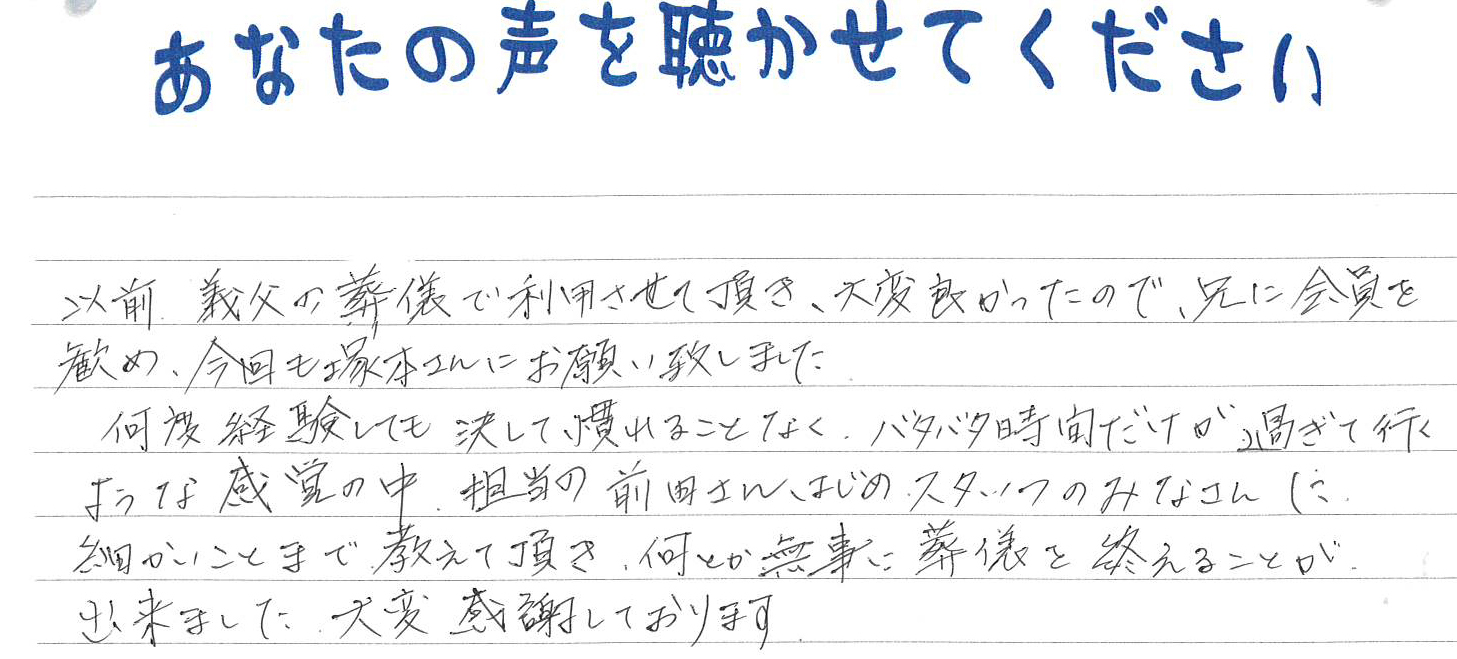 あなたの声を聴かせてください
以前 義父の葬儀で利用させて頂き、大変良かったので、兄に会員を
歓め、今回も塚本さんにお願い致しました
何度経験しても決して慣れることなく、バタバタ時間だけが過ぎて行く
ような感覚の中、担当の前田さん、はじめスタッフのみなさんに
細かいことまで教えて頂き、何とか無事に葬儀を終えることが
出来ました、大変感謝しております